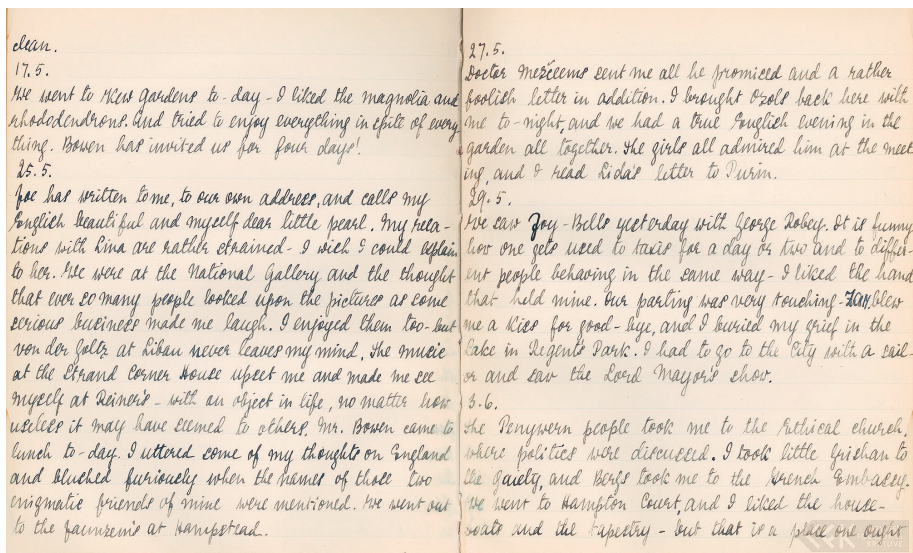 clean.
17.5.
We went to Kew Gardens to-day - I liked the magnolia and
rhododendrons. And tried to enjoy everything in spite of every
thing. Bowen has invited us for four days!
25.5.
Joe has written to me, to our own address, and calls my
English beautiful and myself dear little pearl. My rela-
tions with Lina are rather strained - I wish I could explain
to her. We were at the National Gallery and the thought
that ever so many people looked upon the pictures as some
serious business made me laugh. I enjoyed them too - but
von der Goltz at Libau never leaves my mind. The music
at the Strand Corner House upset me and made me see
myself at Reiner's - with an object in life, no matter how
useless it may have seemed to others. Mr. Bowen came to
lunch to-day. I uttered some of my thoughts on England
and blushed furiously when the names of those two
enigmatic friends of mine were mentioned. We went out
to the Jaunzem's at Hampstead.
27.5.
Doctor sent me all he promised and a rather
foolish letter in addition. I brought Ozols back here with
me to-night, and we had a true English evening in the
garden all together. The girls all admired him at the meet
ing, and I read Lida's letter to Purin.
29.5.
We saw Joy-Bells yesterday with George Robey. It is funny
how one gets used to taxis for a day or two and to differ-
ent people behaving in the same way - I liked the hand
that held mine. Our parting was very touching - blew
me a kiss for good-bye, and I buried my grief in the
lake in Regent's Park. I had to go to the City with a sail-
or and saw the Lord Mayor's show.
3.6.
The Penywern people took me to the Ethical church,
where politics were discussed. I took little Grishan to
the Gaiety, and Bergs took me to the French Embassy.
We went to Hampton Court, and I liked the house-
boats and the tapestry - but that is a place one ought